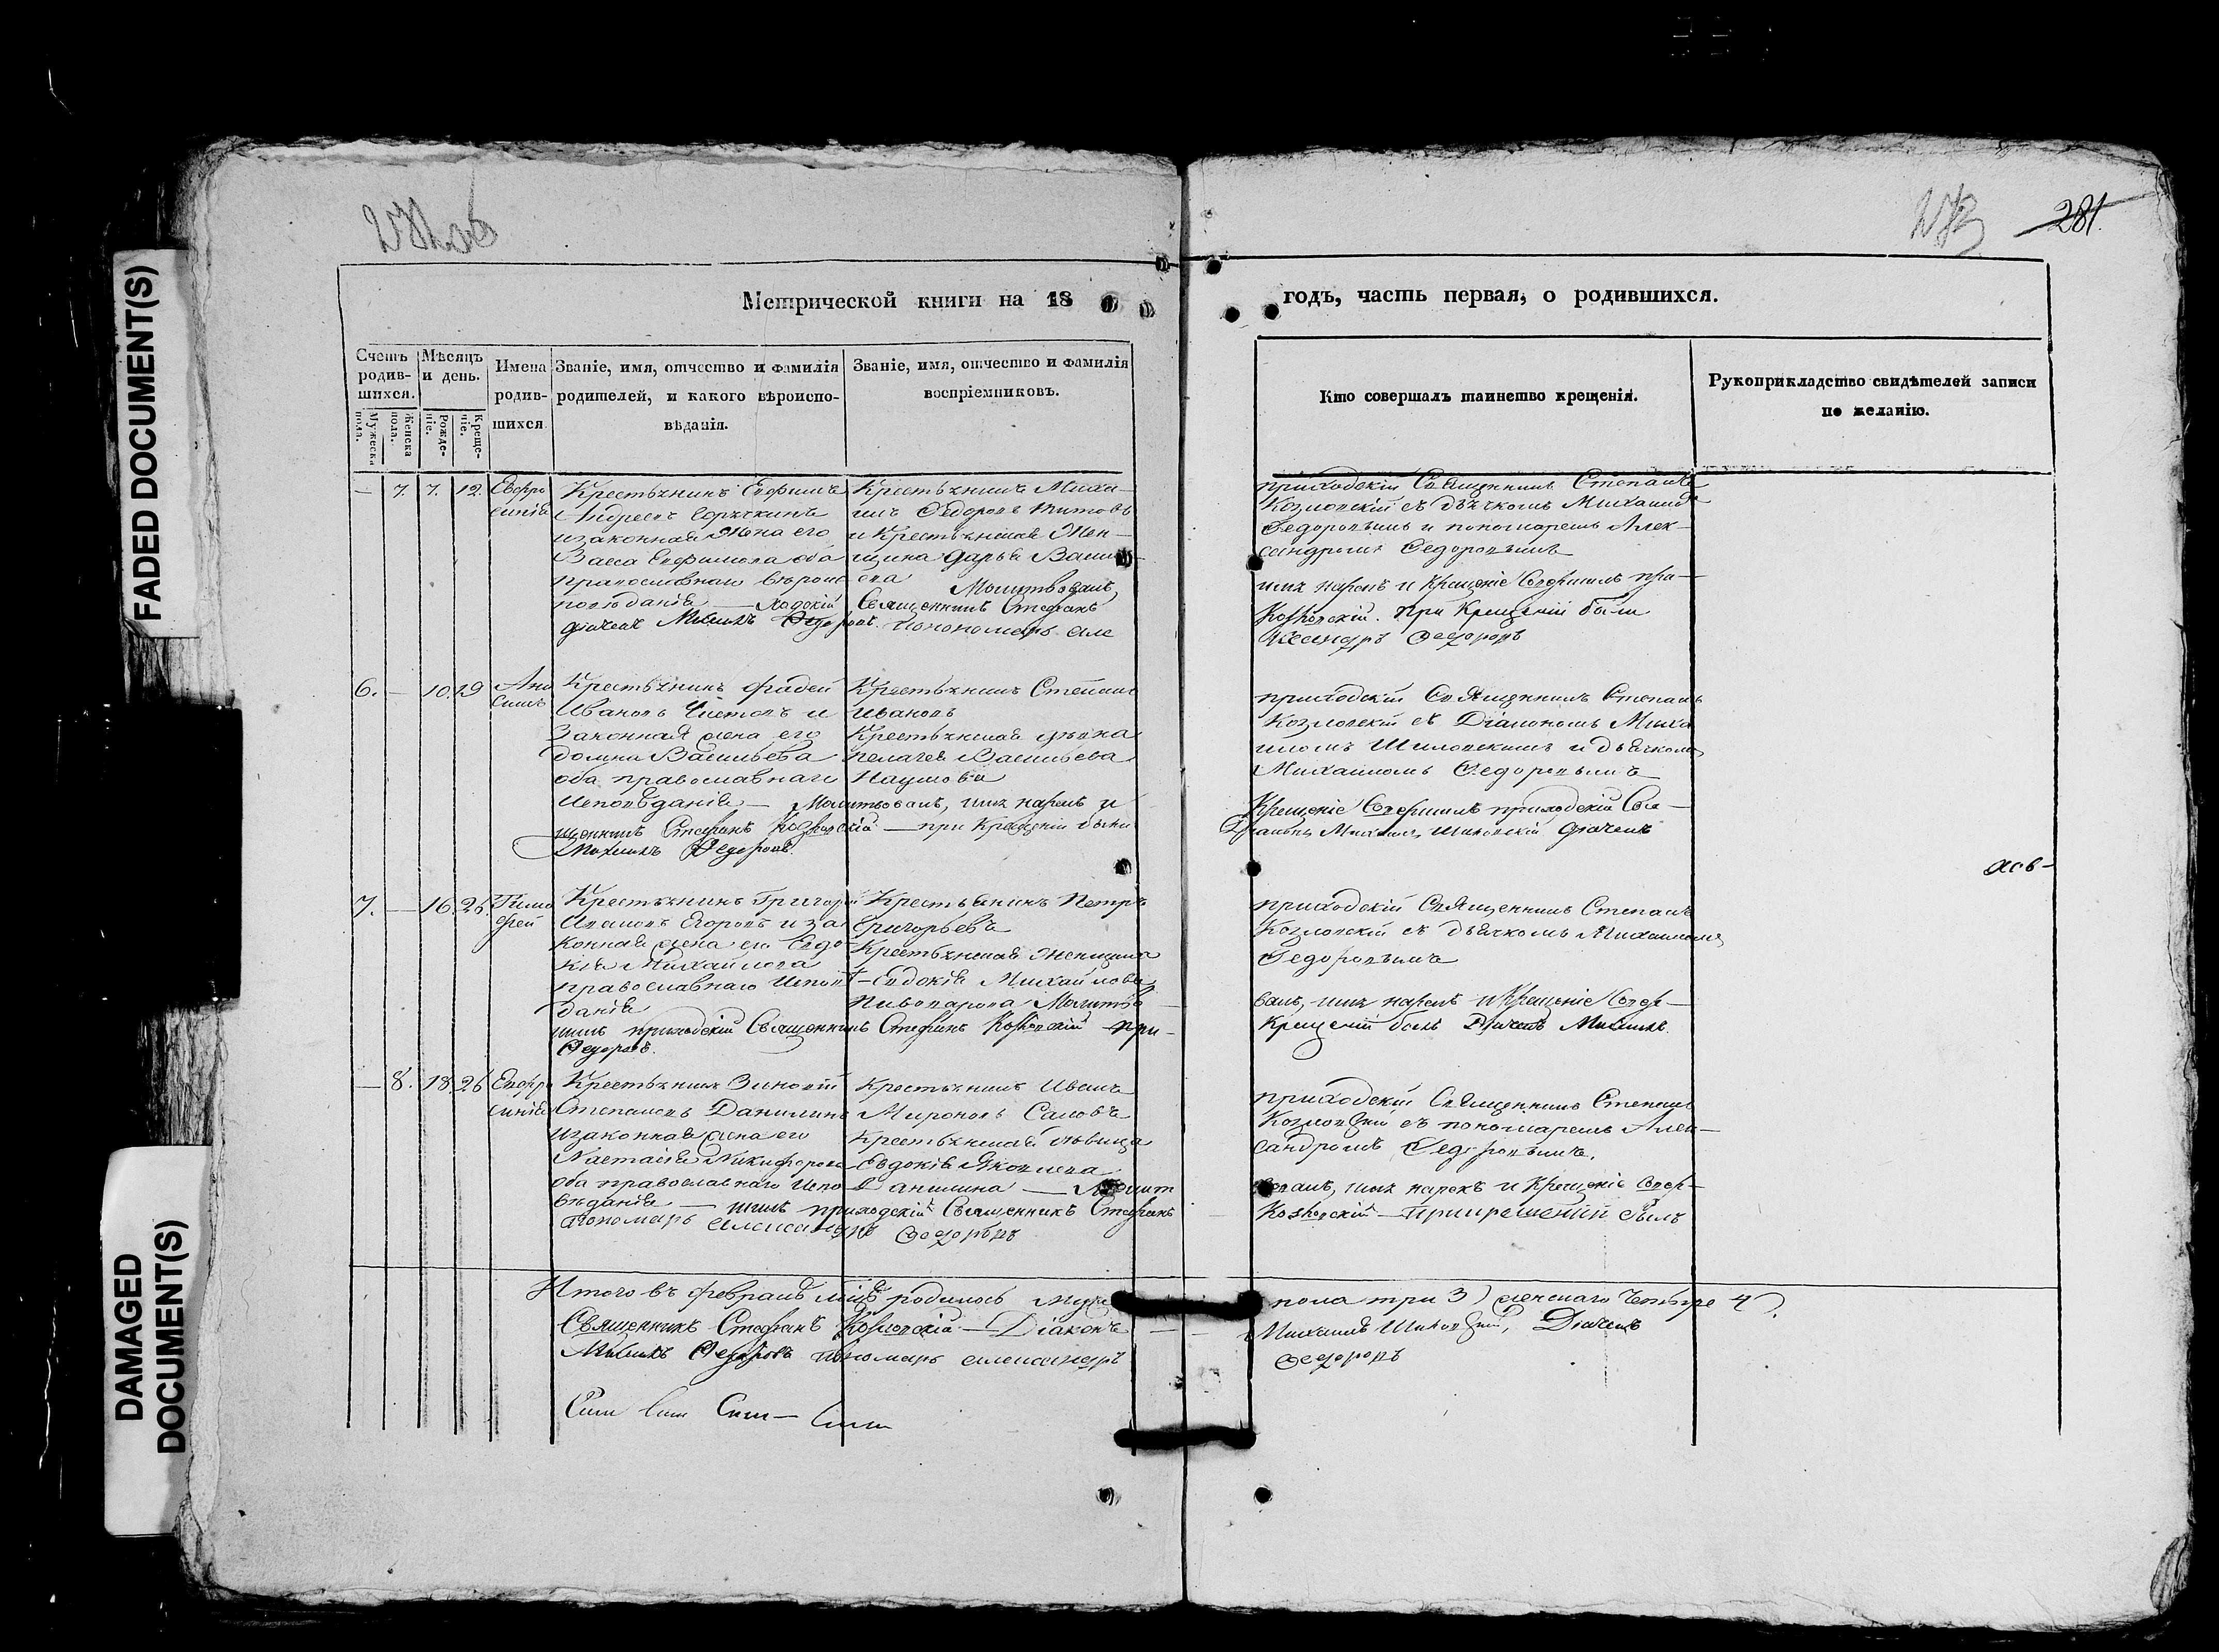 FADED DOCUMENT(S)
DAMAGED
DOCUMENT(S)
281.
Метрической книги на 18
годъ, часть первая, о родившихся.
Счетъ родив-шихся.
Мужеска пола.
Женска пола.
Мѣсяцъ и день.
Рожде-ніе.
Креще-ніе.
Имена родив-шихся
Званіе, имя, отчество и фамилія родителей, и какого вѣроиспо-вѣданія.
Званіе, имя, отчество и фамилія воспріемниковъ.
Кто совершалъ таинство крещенія.
Рукоприкладство свидѣтелей записи по желанію.
— 7. 7. 12. Евфро
синія
Крестьянинъ Ефимъ
Андреевъ
изаконная жена его
Васса Ефимова оба
православнаго вѣроис
Крестьянинъ Миха-
илъ Федоровъ Титовъ
и Крестьянская Жен-
щина Дарья
Молитвовалъ,
Священникъ Стефанъ
дьячекъ Михаилъ Федоровъ. Пономарь Але
приходскій Священникъ Степанъ
Козловскій съ дьячкомъ Михаилом
Федоровымъ и пономаремъ Алек-
сандромъ Федоровымъ
имя нарекъ и Крещеніе Совершилъ при-
Козловскій. при Крещеніи были
ксандръ Федоровъ
6. — 10. 19 Ани
симъ
Крестьянинъ Фадей
Ивановъ Чистовъ и
Законная жена его
Домна Васильева
оба православнаго
Исповѣданія — Молитвовалъ, имя нарекъ и
щенникъ Стефанъ Козловскій — при Крещеніи были
Михаилъ Федоровъ.
Крестьянинъ Степанъ
Ивановъ
Крестьянская дѣвка
Пелагея Васильева
Наумова
приходскій Священникъ Степанъ
Козловскій съ Діакономъ Миха
иломъ Шиловскимъ и дьячкомъ
Михаиломъ Федоровымъ
Крещеніе Совершилъ приходскій Свя-
Діаконъ Михаилъ Шиловскій дьячекъ
7. — 16. 26. Тимо
фей
Крестьянинъ Григорій
Егоровъ и за
конная жена его Евдо
кія Михайлова
православнаго Исповѣ
данія
шилъ приходскій Священникъ Стефанъ Козловскій при-
Федоровъ.
Крестьянинъ Петръ
Григорьевъ
Крестьянская женщина
Евдокія Михайлова
Пивоварова Молитво
приходскій Священникъ Степанъ
Козловскій съ дьячкомъ Михаиломъ
Федоровымъ
валъ, имя нарекъ и Крещеніе Совер-
Крещеніи былъ Дьячекъ Михаилъ
— 8. 18. 26 Евфро
синія
Крестьянинъ Зиновій
Степановъ Данилинъ
изаконная жена его
Настасія Никифорова
оба православнаго Испо
вѣданія — шилъ приходскій Священникъ Стефанъ
Пономарь Александръ Федоровъ
Крестьянинъ Иванъ
Мироновъ Саловъ
Крестьянская дѣвица
Евдокія Яковлева
Данилина — Молит
приходскій Священникъ Степанъ
Козловскій съ пономаремъ Алек-
сандромъ Федоровымъ.
вовалъ, имя нарекъ и Крещеніе Совер-
Козловскій — При крещеніи былъ
Итого въ февралѣ мцѣ родилось Муж
пола три 3) женскаго Четыре 4).
Священникъ Стефанъ Козловскій — Діаконъ
Михаилъ Шиловскій, Дьячекъ
Михаилъ Федоровъ Пономарь Александръ
Федоровъ